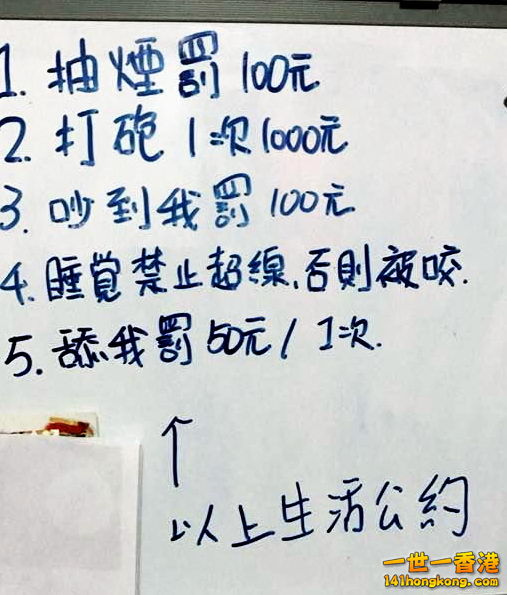 1. 抽煙罰100元
2. 打砲1次1000元
3. 吵到我罰100元
4. 睡覚禁止超線,否則被咬.
5. 舔我罰50元/1次.
↑
以上生活公約
一世一香港
141hongkong.com